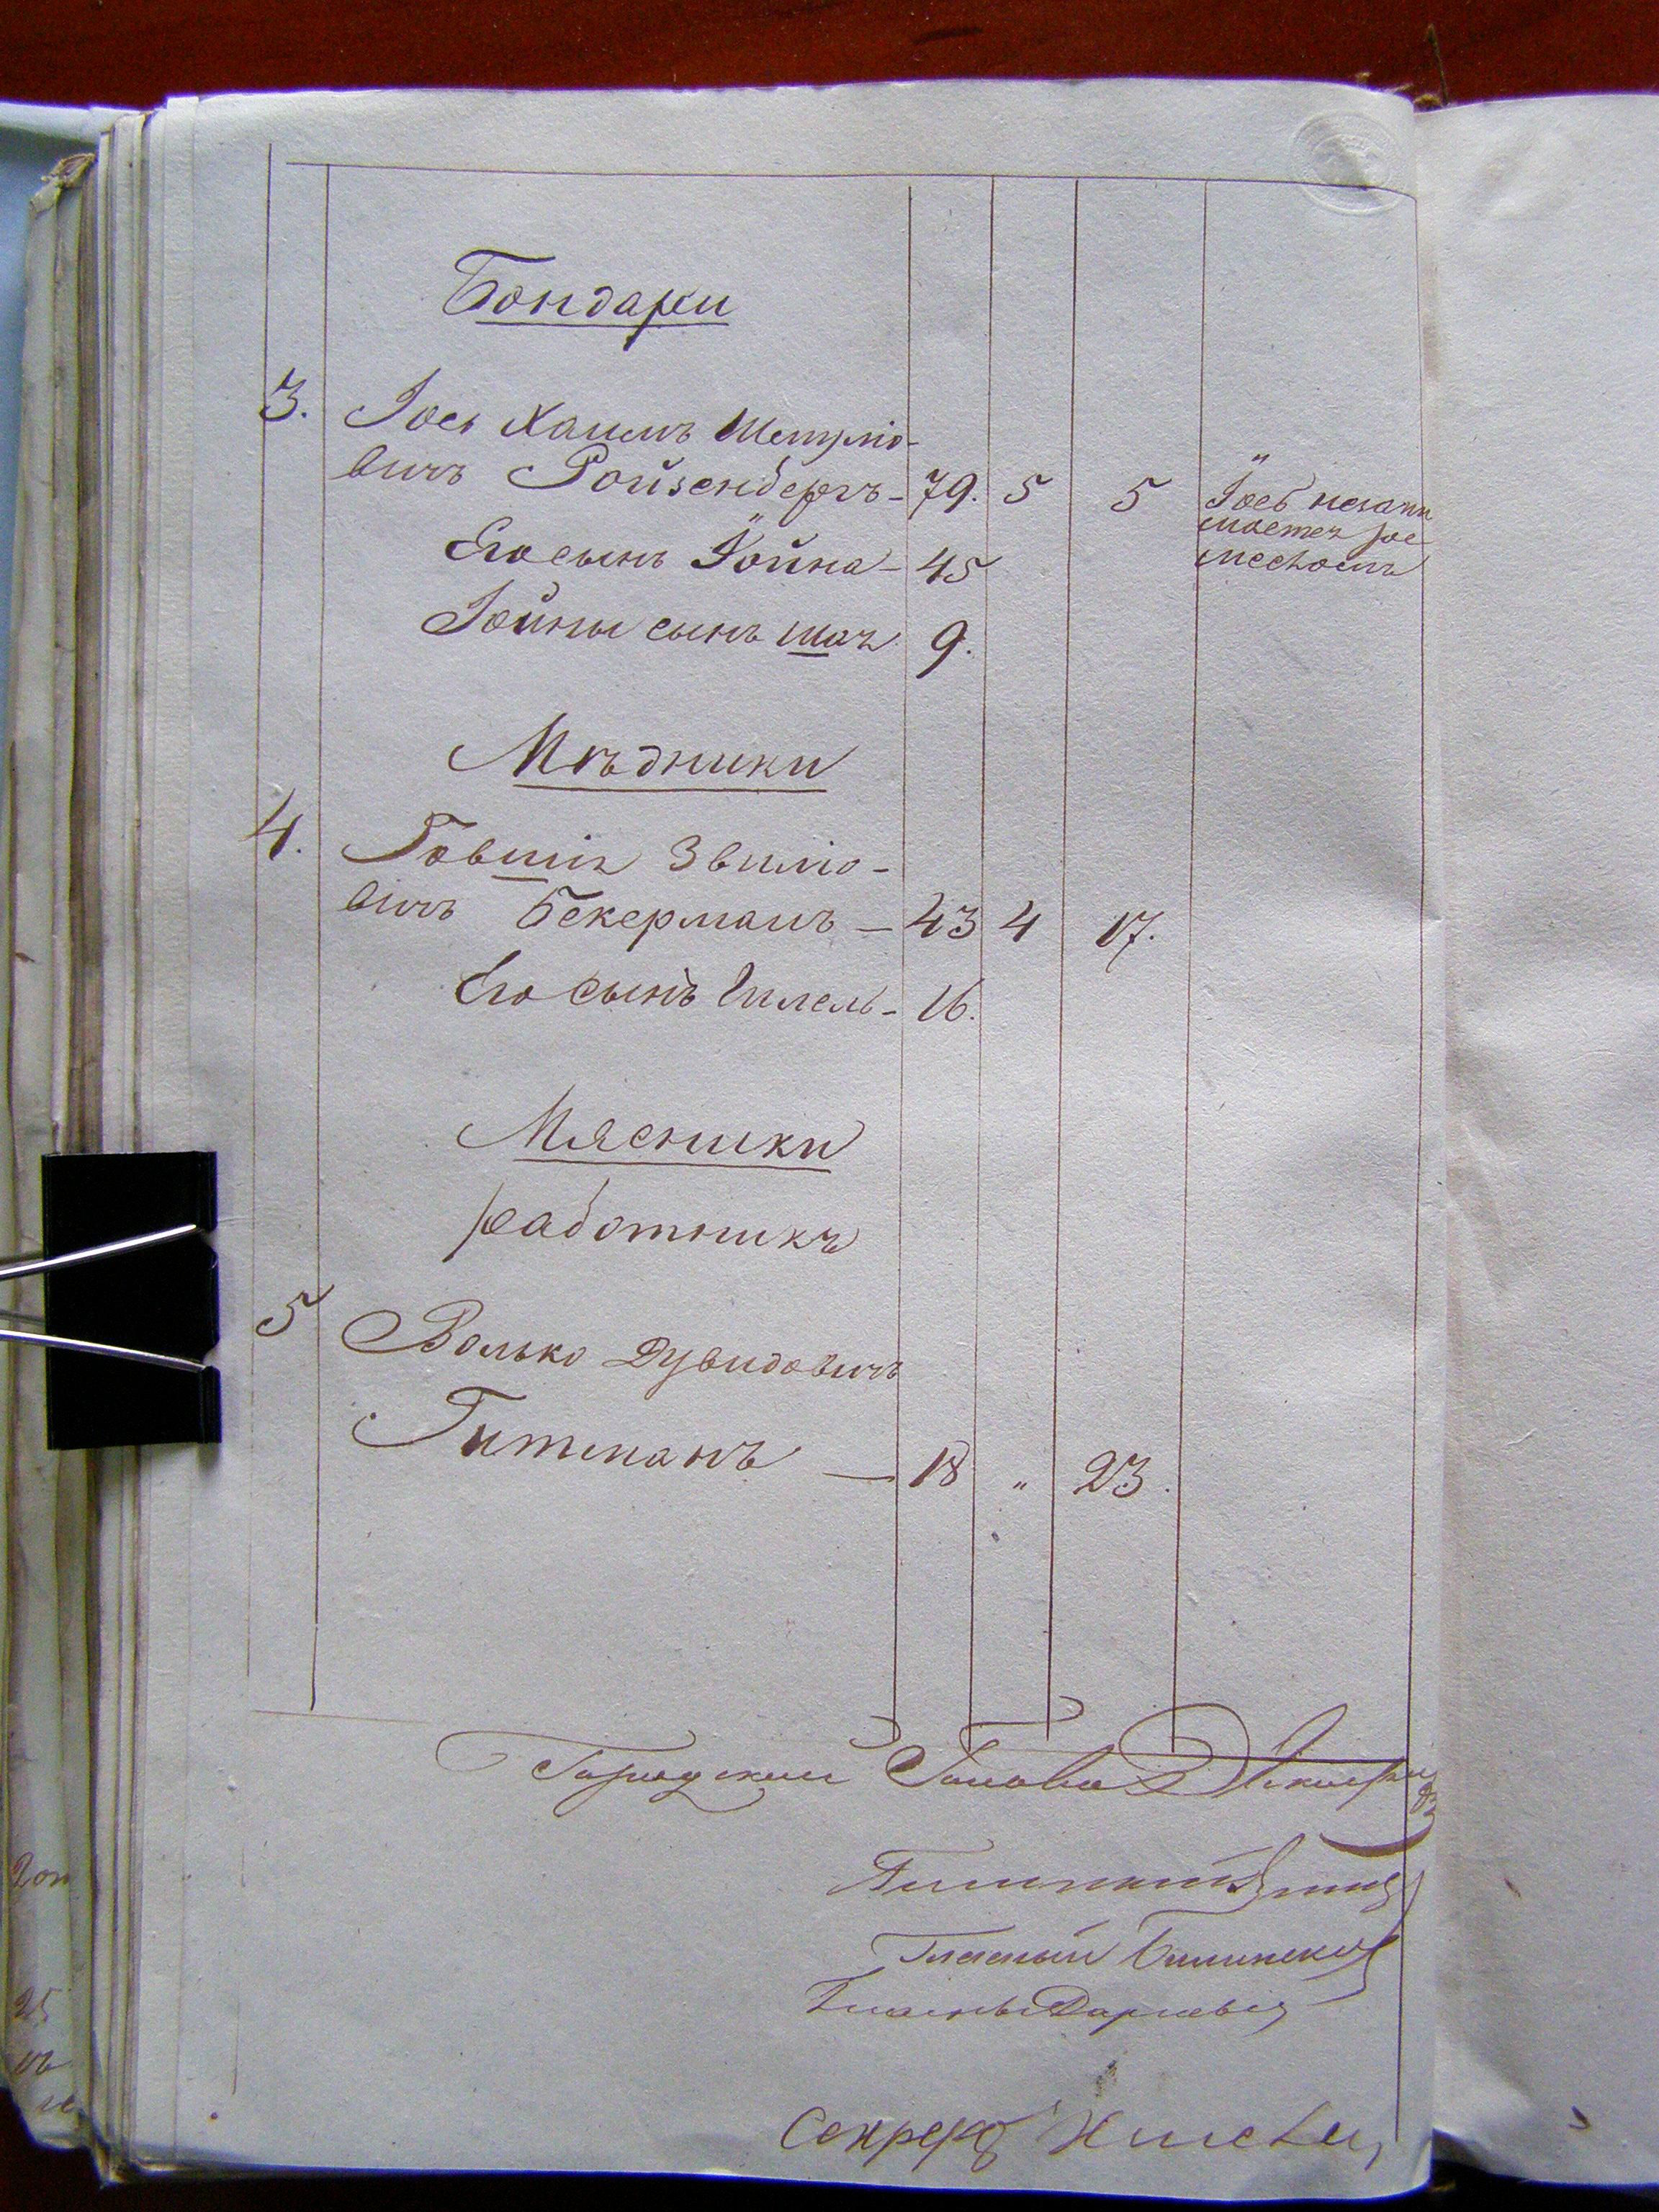 Бондари
3. Іось Хаимъ Шмуліо-
вичъ Ройзенбергъ - 79. 5 5 Іось незани
маетъя ре
месломъ
Его сынъ Іойна - 45
Іойны сынъ 9.
Мѣдники
4. Говшія Звиліо-
вичъ Бекерманъ — 43 4 17.
Его сынъ Гилель - 16.
Мясники
работникъ
5 Волько Дувидовичъ
Гитманъ — 18 „ 23.
Городский Голова
Гласный Билинский
Гласный
Секрет